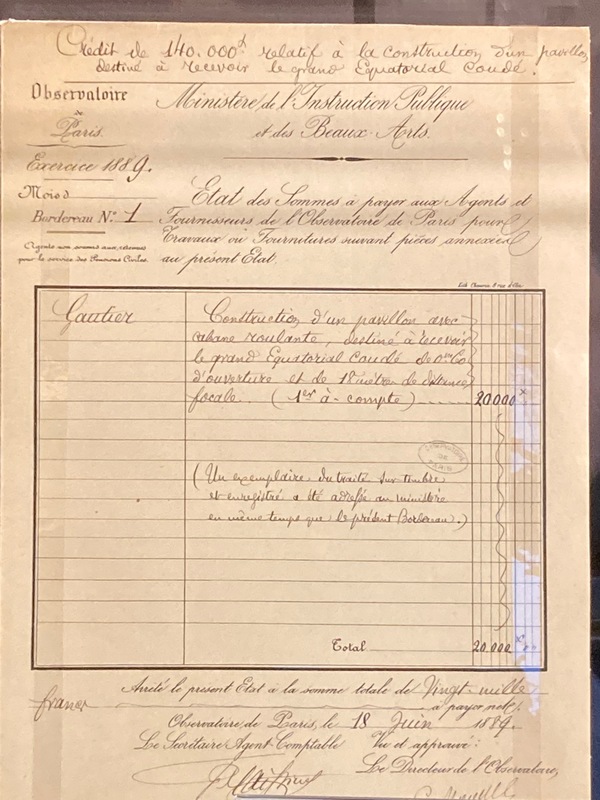 Crédit de 140.000f relatif à la construction d'un pavillon
destiné à recevoir le grand Equatorial Coudé.
Observatoire
de
Paris.
Ministère de l'Instruction Publique
et des Beaux-Arts.
Exercice 1889.
Mois d
Bordereau N.° 1
Agents non soumis aux retenues
pour le service des Pensions Civiles.
Etat des Sommes à payer aux Agents et
Fournisseurs de l'Observatoire de Paris pour
Travaux ou Fournitures suivant pièces annexées
au présent Etat.
Gautier
Construction d'un pavillon avec
cabane roulante, destiné à recevoir
le grand Equatorial Coudé de 0m60
d'ouverture et de 18 mètres de distance
focale. (1er à-compte) 20000
OBSERVATOIRE
DE
PARIS
(Un exemplaire du traité sur timbre
et enregistré a été adressé au ministère
en même temps que le présent Bordereau.)
Total 20.000
Arrêté le présent Etat à la somme totale de Vingt-mille
francs à payer net.
Observatoire de Paris, le 18 Juin 1889.
Le Secrétaire Agent-Comptable
Vu et approuvé:
Le Directeur de l'Observatoire,